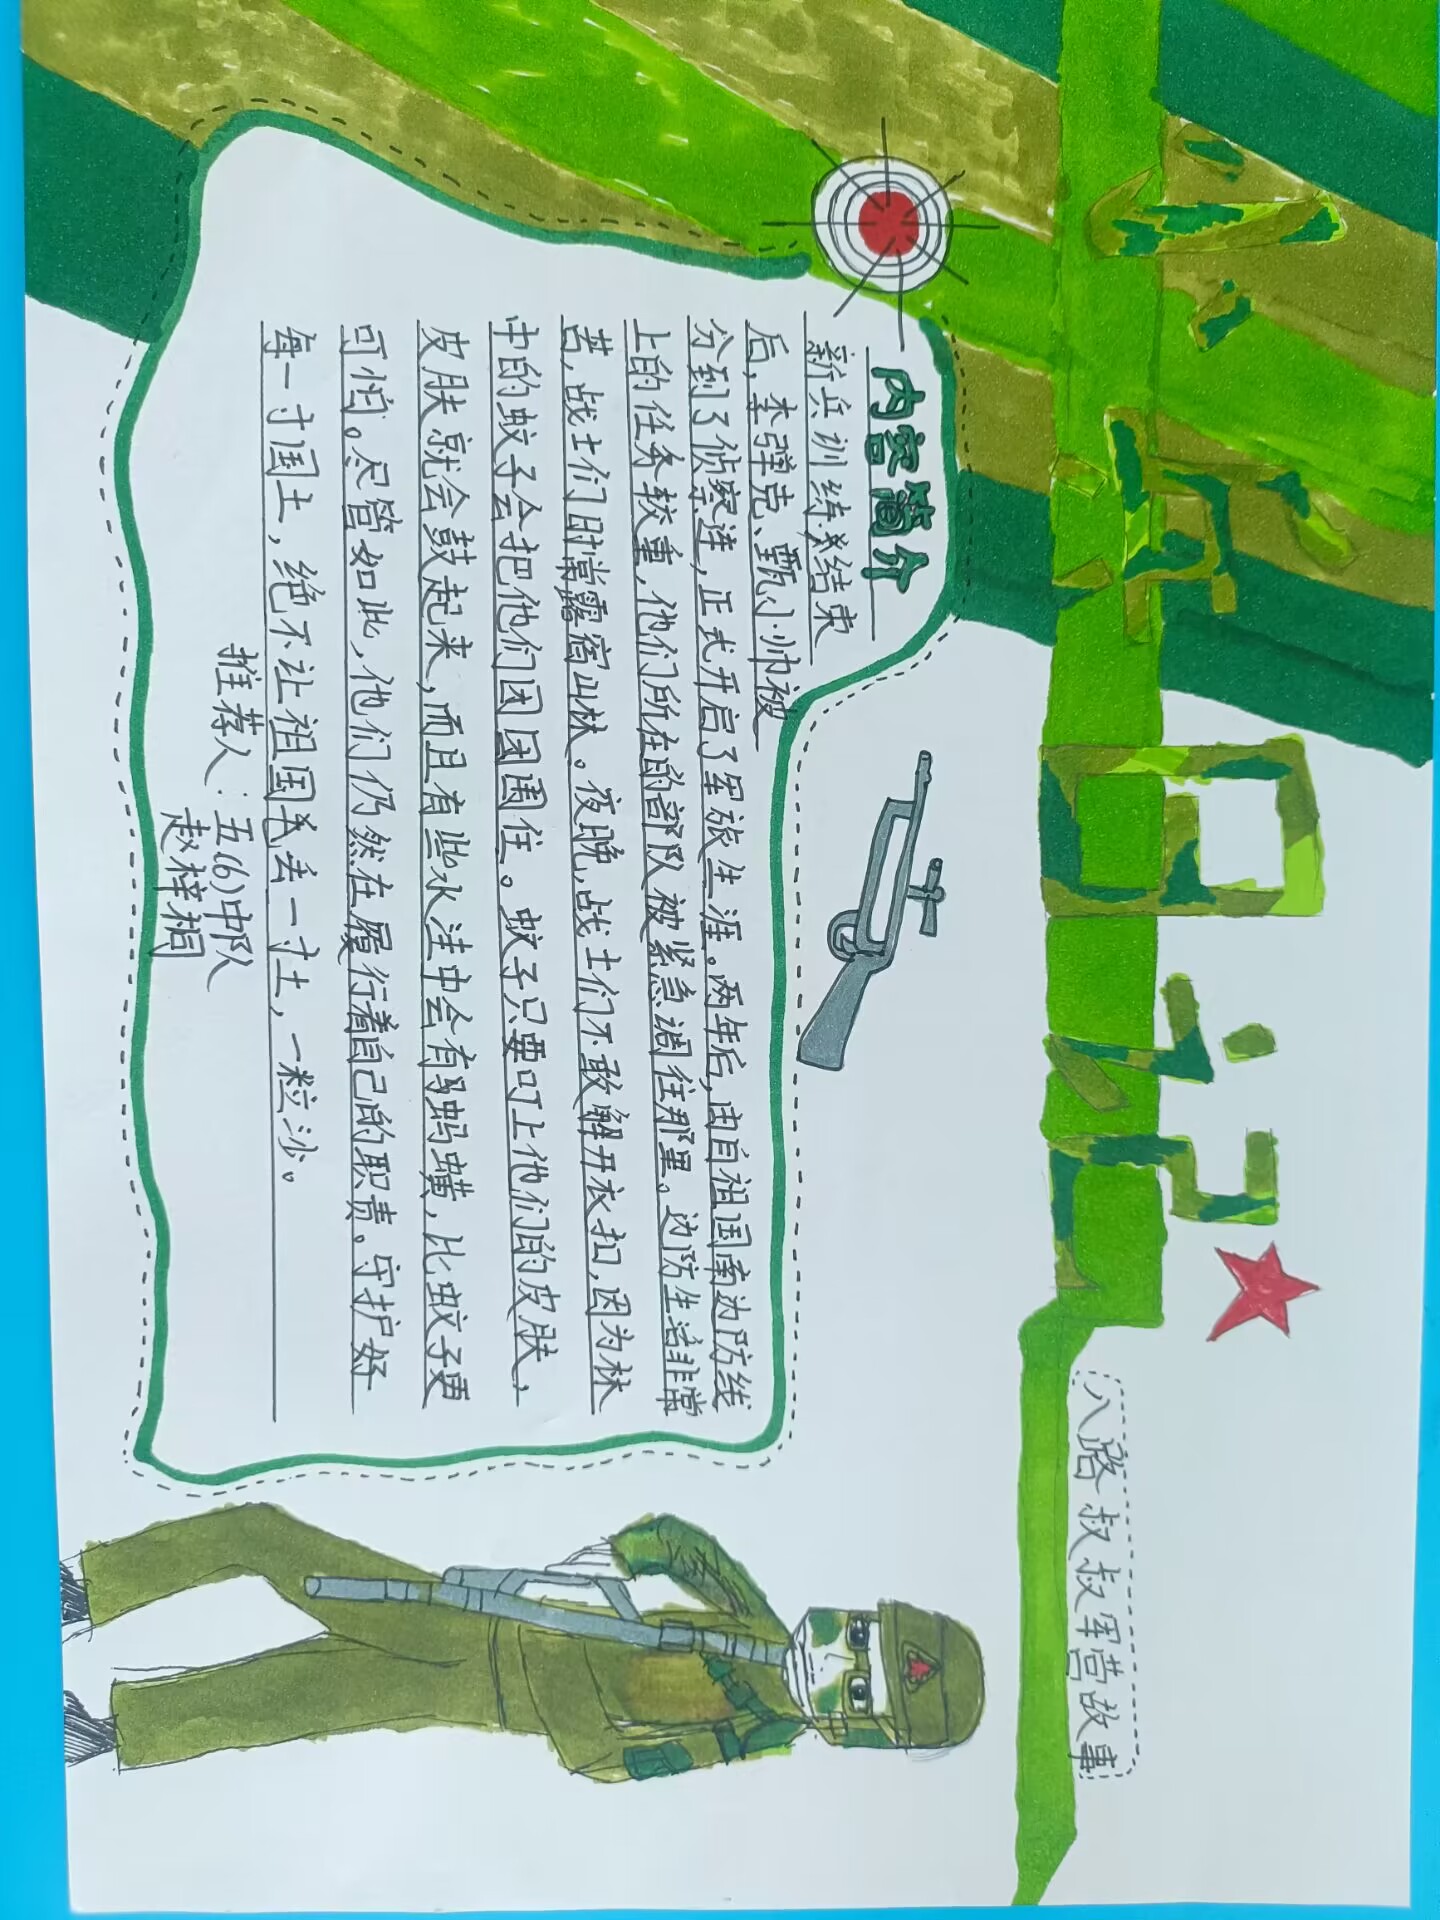 小兵日记
八路叔叔军营故事
内容简介
新兵训练、结束
后，李弹克、甄小帅被
分到了侦察连，正式开启了军旅生涯。两年后，由自祖国南边防线
上的任务较重，他们所在的部队被紧急调往那里。边防生活非常
苦，战士们时常露宿山林。夜晚，战士们不敢解开衣扣，因为林
中的蚊子会把他们团团围住。蚊子只要叮上他们的皮肤，
皮肤就会鼓起来，而且有些水洼中会有蚂蟥，比蚊子更
可怕。尽管如此，他们仍然在履行着自己的职责。守护好
每一寸国土，绝不让祖国丢一寸土，一粒沙。
推荐人：五(6)中队
赵梓桐